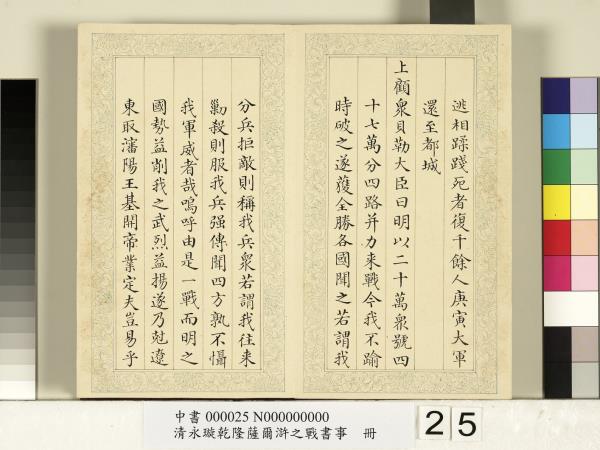 逃相蹂踐死者復千餘人庚寅大軍
還至都城
上顧衆貝勒大臣曰明以二十萬衆號四
十七萬分四路并力来戰今我不踰
時破之遂獲全勝各國聞之若謂我
分兵拒敵則稱我兵衆若謂我往来
勦殺則服我兵强傳聞四方孰不懾
我軍威者哉嗚呼由是一戰而明之
國勢益削我之武烈益揚遂乃尅遼
東取瀋陽王基開帝業定夫豈易乎
中書 000025 N000000000
清永璇乾隆薩爾滸之戰書事 冊
25